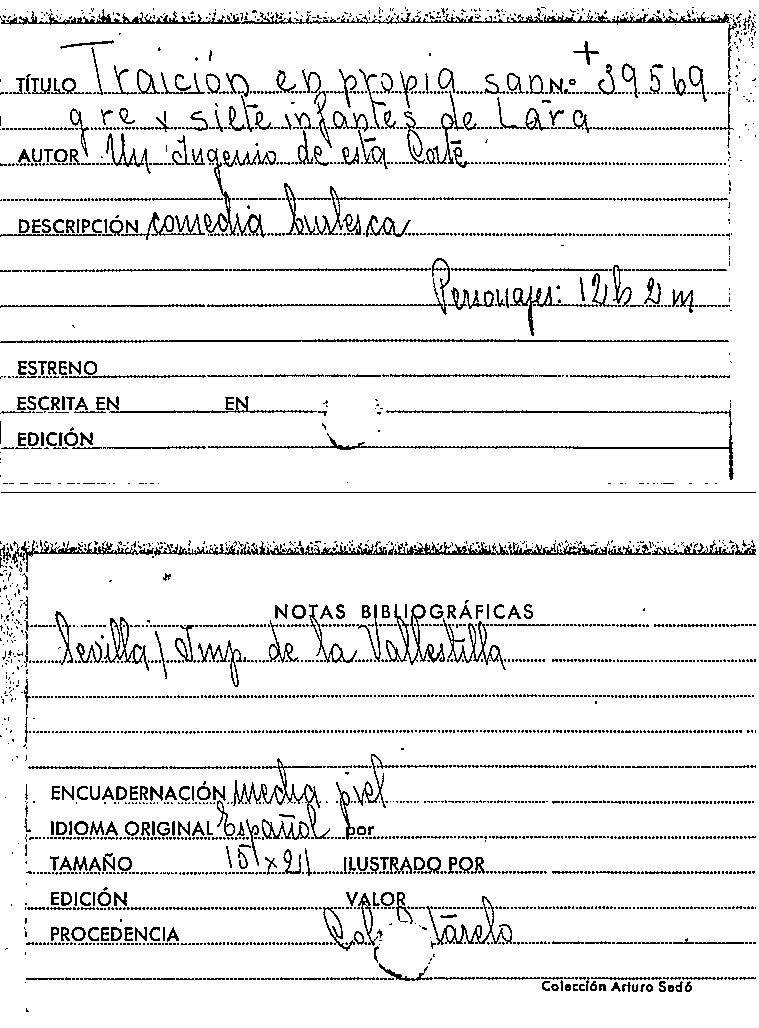 TÍTULO Traición en propia san N.º + 39569
gre y siete infantes de Lara
AUTOR Un Ingenio de esta Corte
DESCRIPCIÓN comedia burlesca
Personajes: 12 h 2 m
ESTRENO
ESCRITA EN EN
EDICIÓN
NOTAS BIBLIOGRÁFICAS
Sevilla / Imp. de la Vallestilla
ENCUADERNACIÓN media piel
IDIOMA ORIGINAL Español por
TAMAÑO 15 x 21 ILUSTRADO POR
EDICIÓN VALOR
PROCEDENCIA Col. tarelo
Colección Arturo Sedó